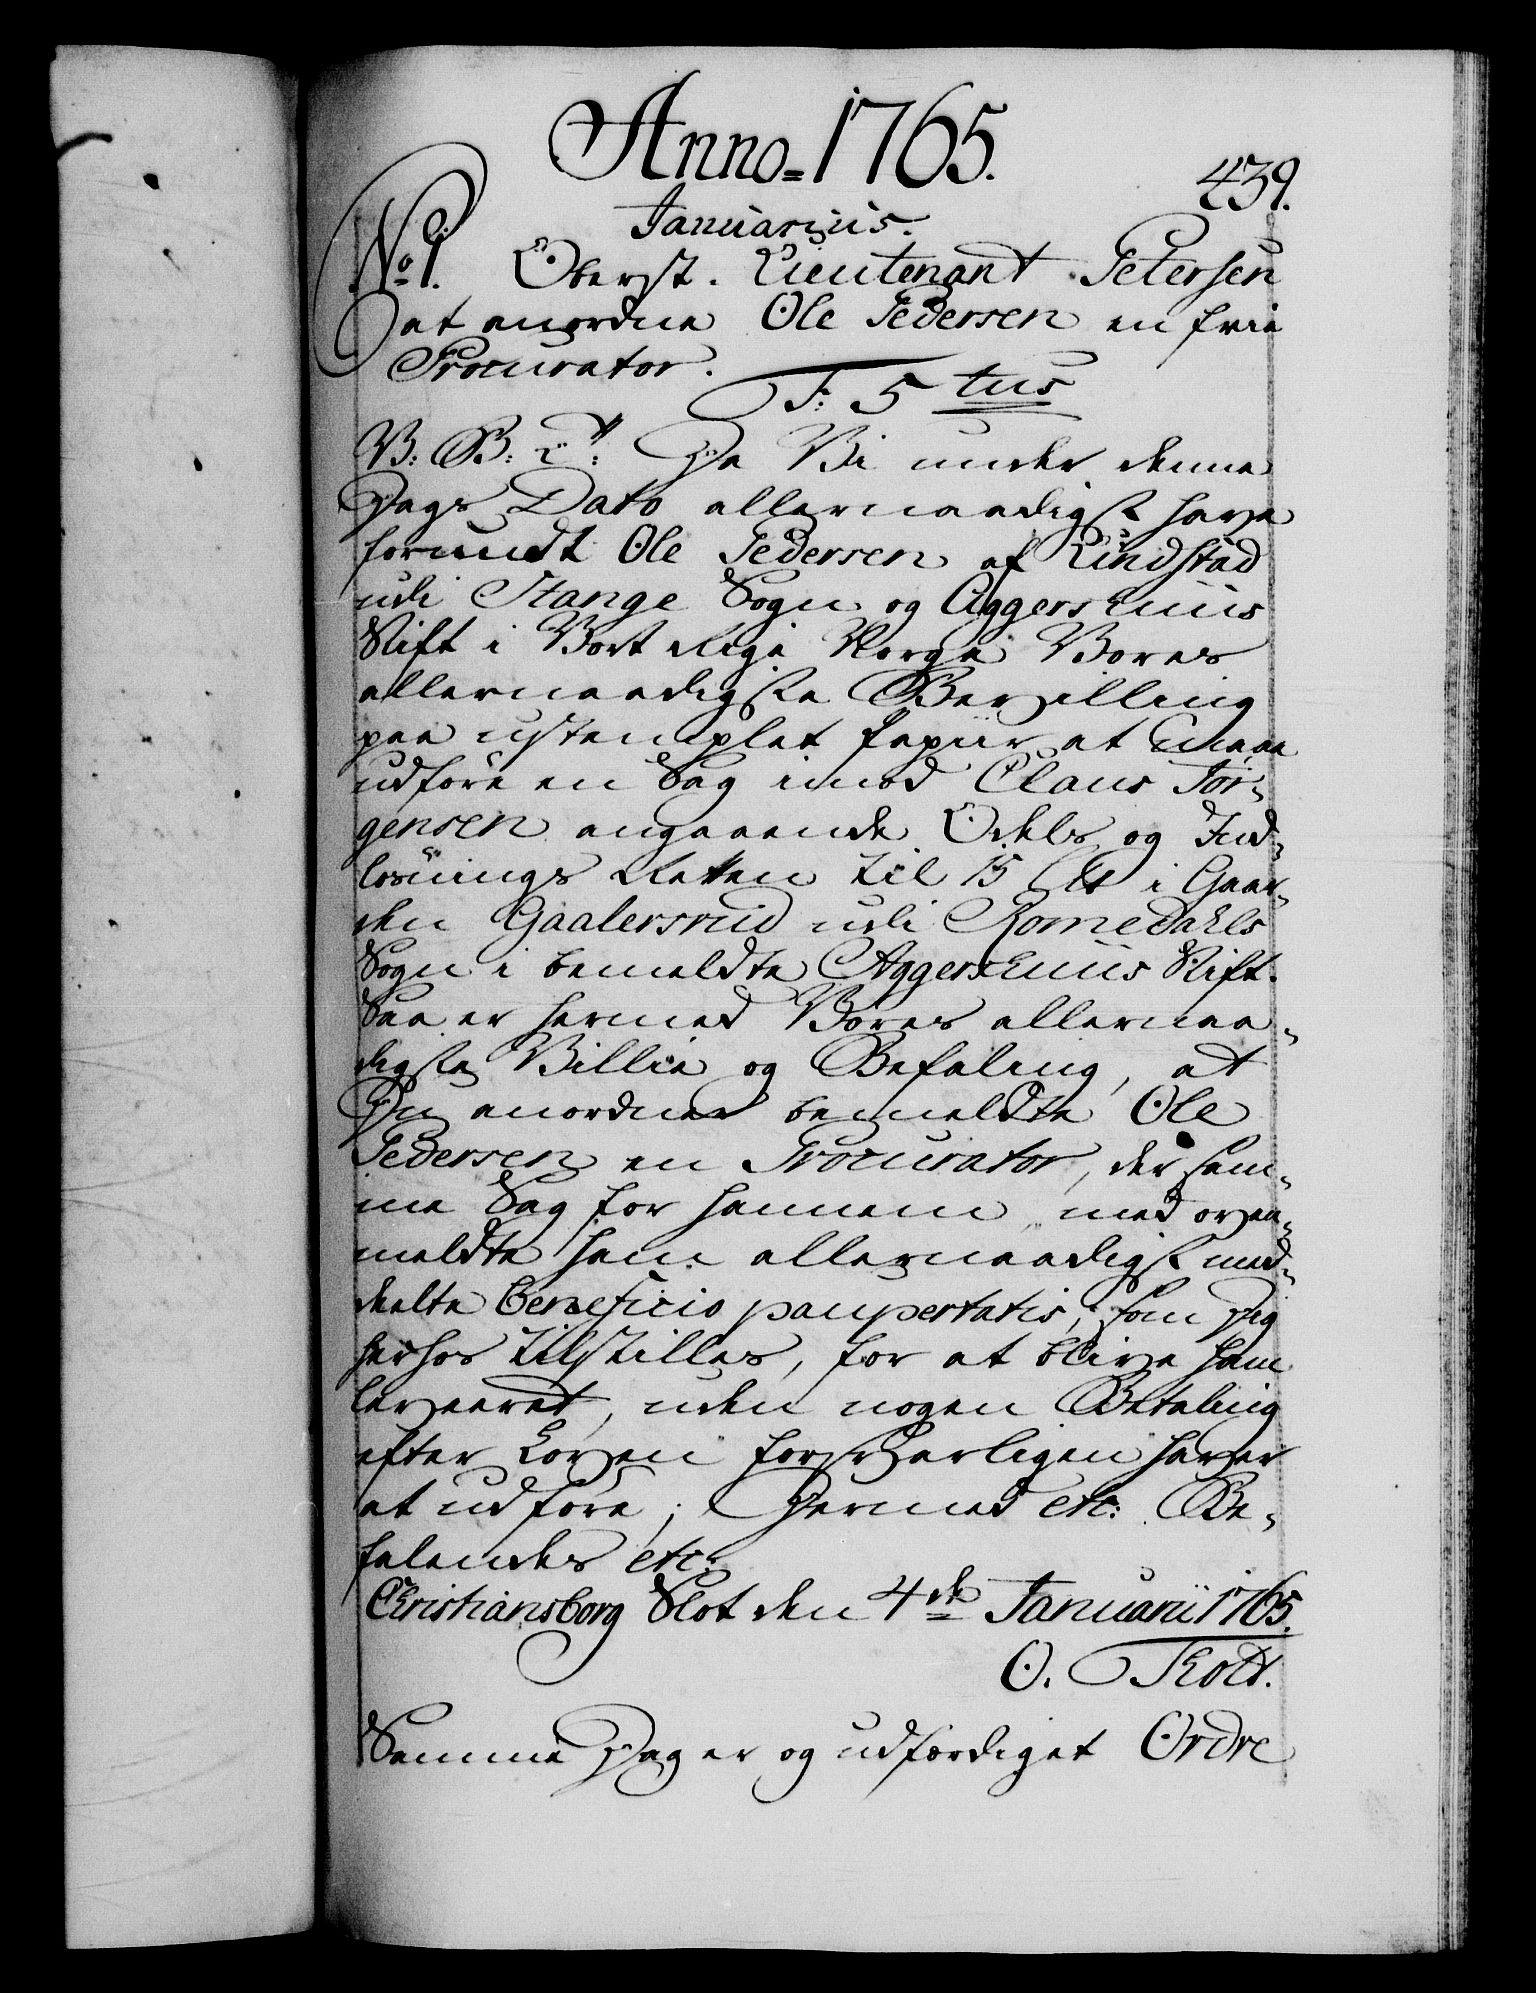 Anno=1765.
439.
Januarius.
No 1. Oberst. Lieutenant Petersen
at anordne Ole Pedersen en frie
Procurator.
F: 5 tus
V: G: T: Da Vi under denne
Dags Dato allernaadigst have
forundt Ole Pedersen af Lindstad
udi Stange Sogn og Aggershuus
Stift i Vort Rige Norge Vores
allernaadigste Bevilling
paa ustemplet Papiir at maae
udføre en Sag imod Claus Jør-
gensen angaaende Odels og Ind-
løsnings Retten til 15 i Gaar-
den Gaalersrud udi Romedahls
Sogn i bemeldte Aggershuus Stift.
Saa er hermed Vores allernaa-
digste Villie og Befaling, at
Du anordner bemeldte Ole
Pedersen en Procurator, der sam-
me Sag for hannem med oven-
meldte ham allernaadigst med-
deelte beneficio paupertatis, som Dig
herhos tilstilles, for at blive ham
leveeret, uden nogen Betaling
efter Loven forsvarligen haver
at udføre; Dermed etc: Be-
falendes etc:
Christiansborg Slot den 4de Januarii 1765.
O. Thott.
Samme Dag er og udfærdiget Ordre